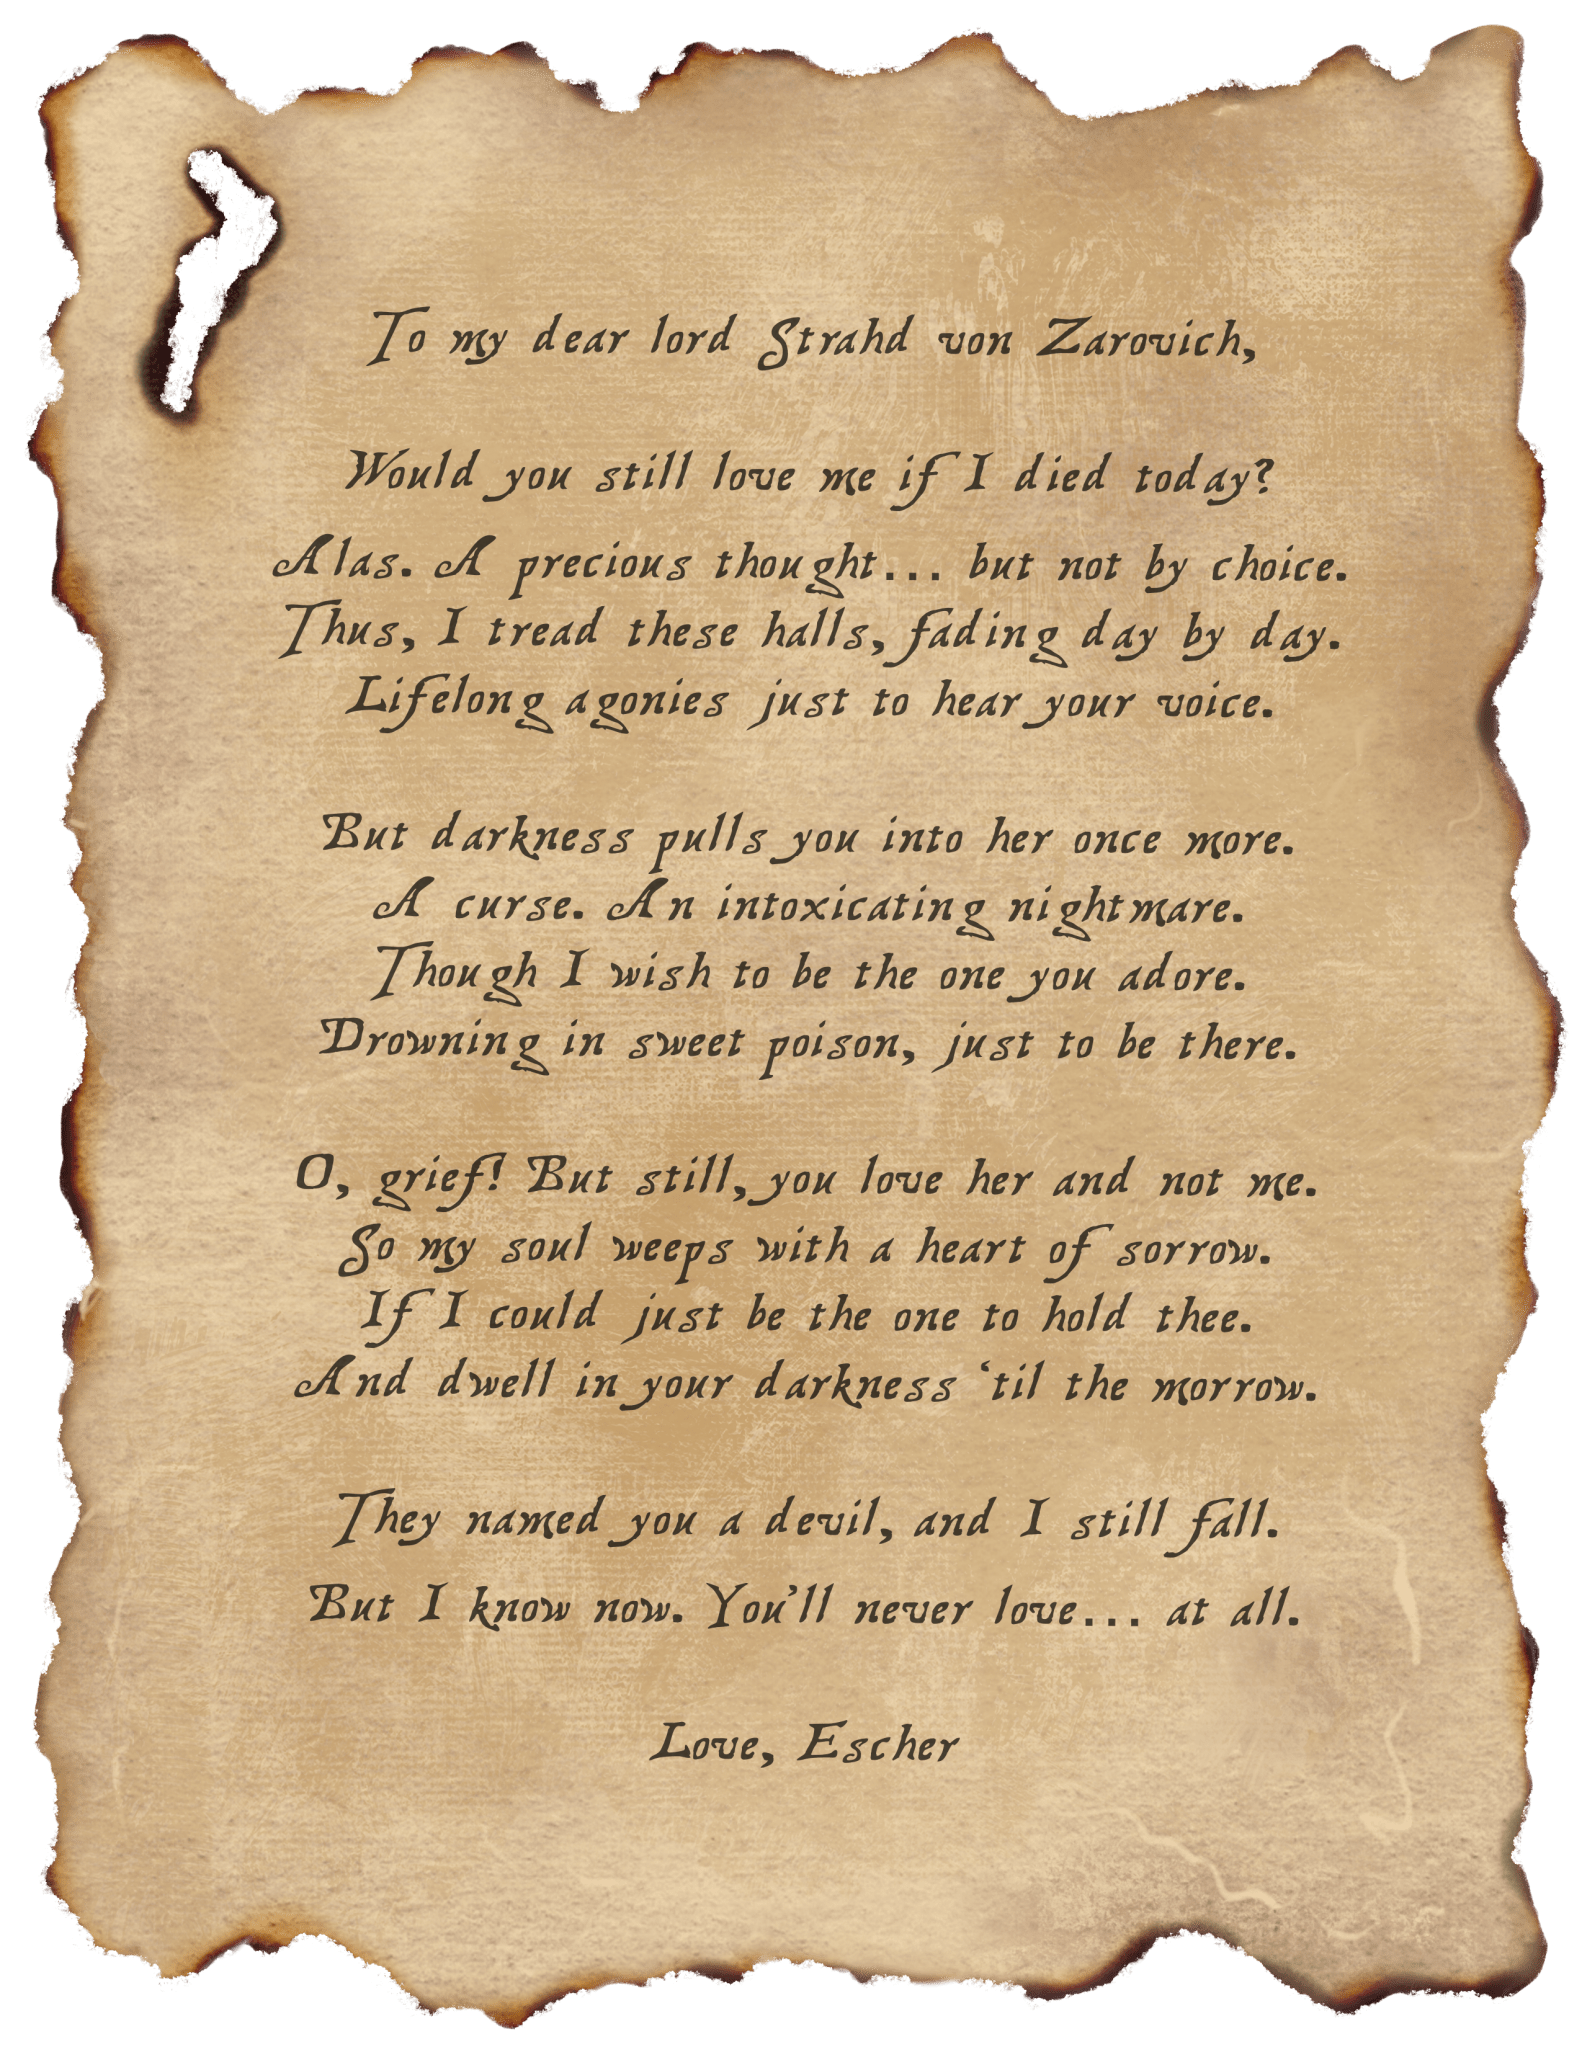 To my dear lord Strahd von Zarovich,
Would you still love me if I died today?
Alas. A precious thought... but not by choice.
Thus, I tread these halls, fading day by day.
Lifelong agonies just to hear your voice.
But darkness pulls you into her once more.
A curse. An intoxicating nightmare.
Though I wish to be the one you adore.
Drowning in sweet poison, just to be there.
O, grief! But still, you love her and not me.
So my soul weeps with a heart of sorrow.
If I could just be the one to hold thee.
And dwell in your darkness ‘til the morrow.
They named you a devil, and I still fall.
But I know now. You’ll never love... at all.
Love, Escher